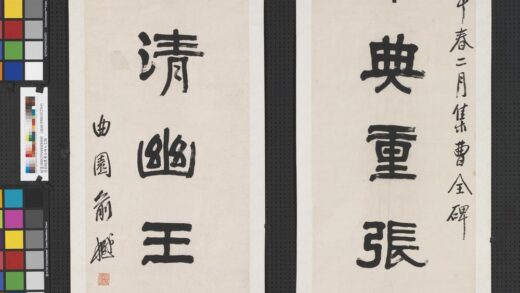 春二月集曹全碑
典重張
清幽王
曲園俞樾